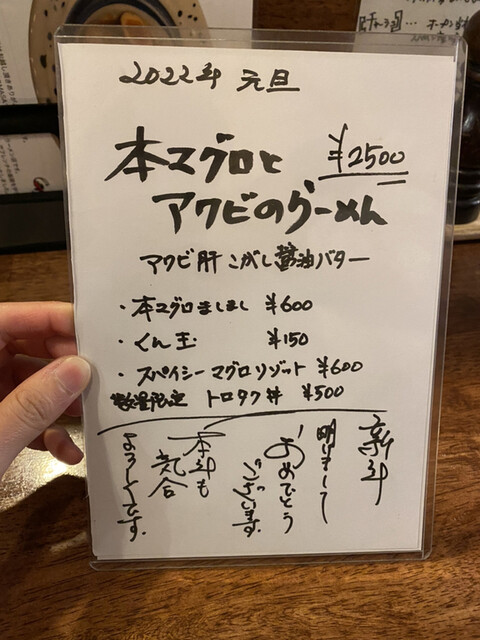 2022年 元旦
本マグロと
アワビのらーめん
¥2500
アワビ肝 こがし醤油バター
・本マグロましまし ¥600
・くん玉 ¥150
・スパイシーマグロリゾット ¥600
数量限定 トロタク丼 ¥500
新年
明けまして
おめでとう
ございます。
本年も
気合
よろしくです。